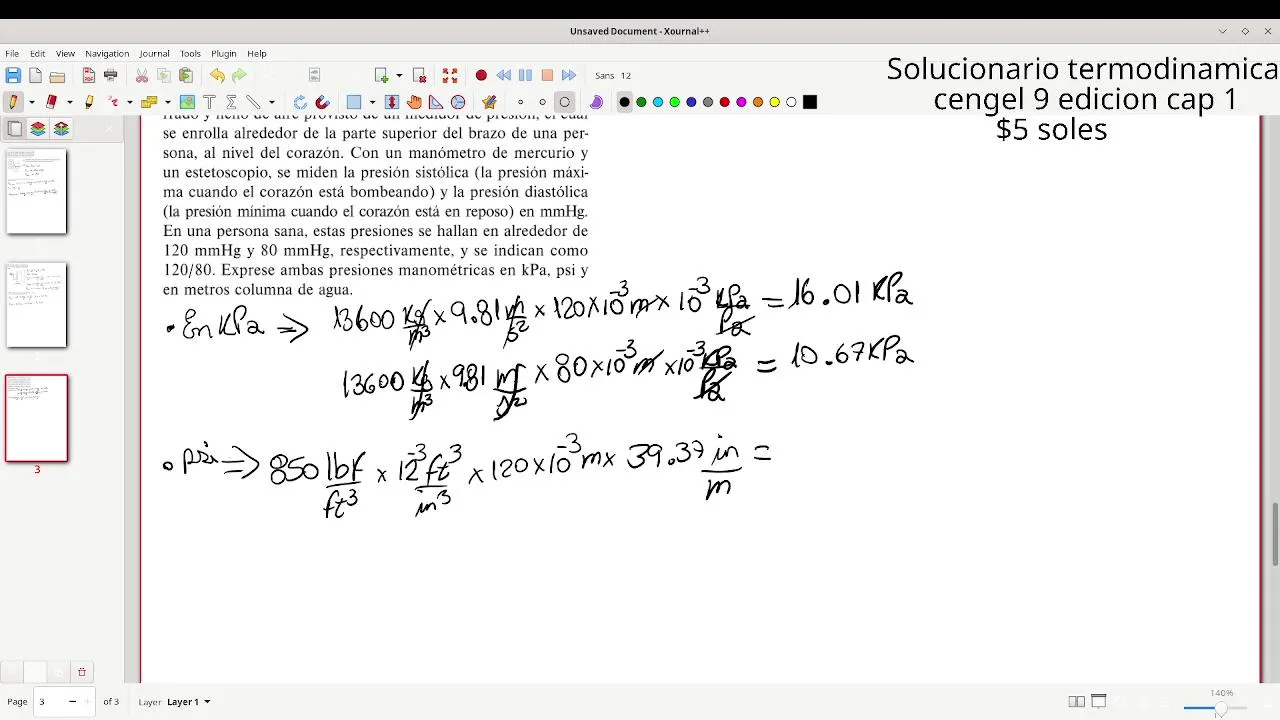 Unsaved Document - Xournal++
File Edit View Navigation Journal Tools Plugin Help
Sans 12
Solucionario termodinamica
cengel 9 edicion cap 1
$5 soles
trado y lleno de aire provisto de un medidor de presión, el cual
se enrolla alrededor de la parte superior del brazo de una per-
sona, al nivel del corazón. Con un manómetro de mercurio y
un estetoscopio, se miden la presión sistólica (la presión máxi-
ma cuando el corazón está bombeando) y la presión diastólica
(la presión mínima cuando el corazón está en reposo) en mmHg.
En una persona sana, estas presiones se hallan en alrededor de
120 mmHg y 80 mmHg, respectivamente, y se indican como
120/80. Exprese ambas presiones manométricas en kPa, psi y
en metros columna de agua.
• En KPa ⇒ 13600 kg/m³ × 9.81 m/s² × 120×10⁻³ m × 10⁻³ KPa/Pa = 16.01 KPa
13600 kg/m³ × 9.81 m/s² × 80×10⁻³ m × 10⁻³ KPa/Pa = 10.67 KPa
• psi ⇒ 850 lbf/ft³ × 12⁻³ ft³/in³ × 120×10⁻³ m × 39.37 in/m =
3
Page 3 of 3 Layer Layer 1
140%